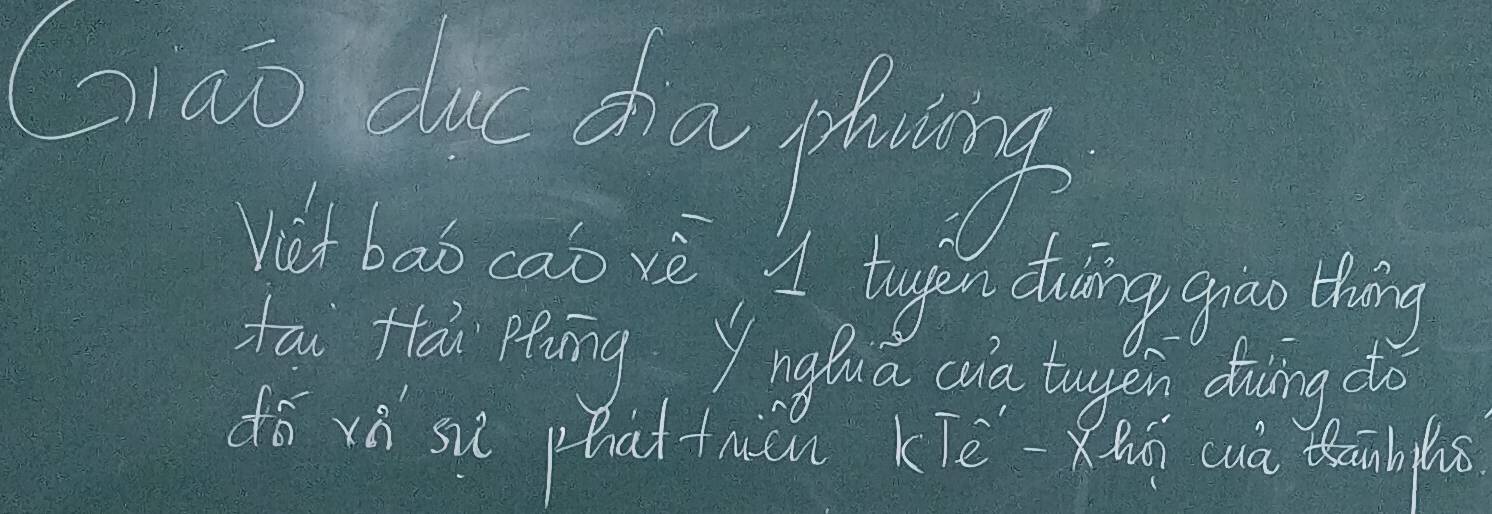 Giáo dục địa phương.
Viết báo cáo về 1 tuyến đường giao thông
tại Hải Phòng. Ý nghĩa của tuyến đường đó
đối với sự phát triển KTế - Xhội của thành phố.